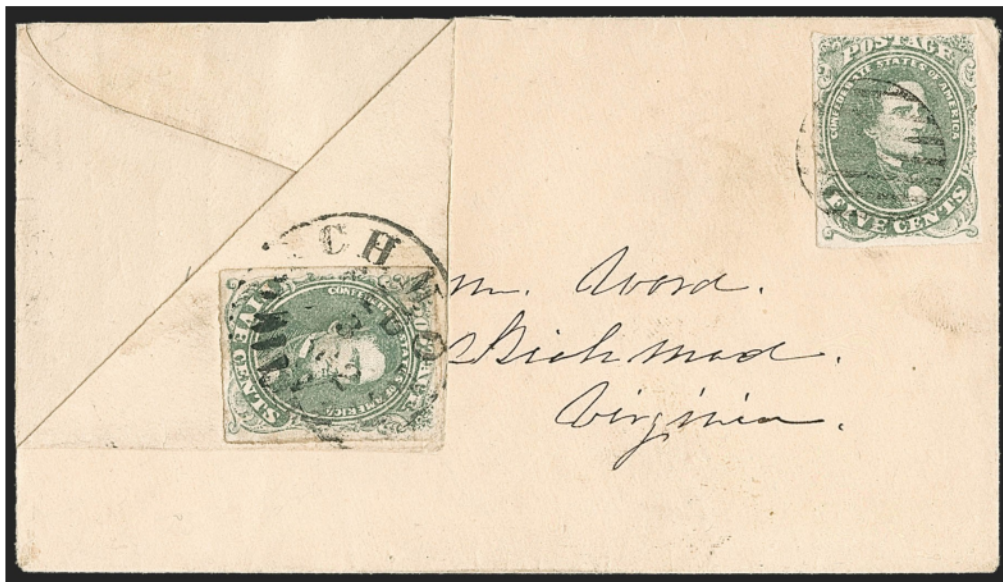 POSTAGE
CONFEDERATE STATES OF AMERICA
FIVE CENTS
POSTAGE
CONFEDERATE STATES OF AMERICA
FIVE CENTS
Mr. Word.
Richmod.
Virginia.